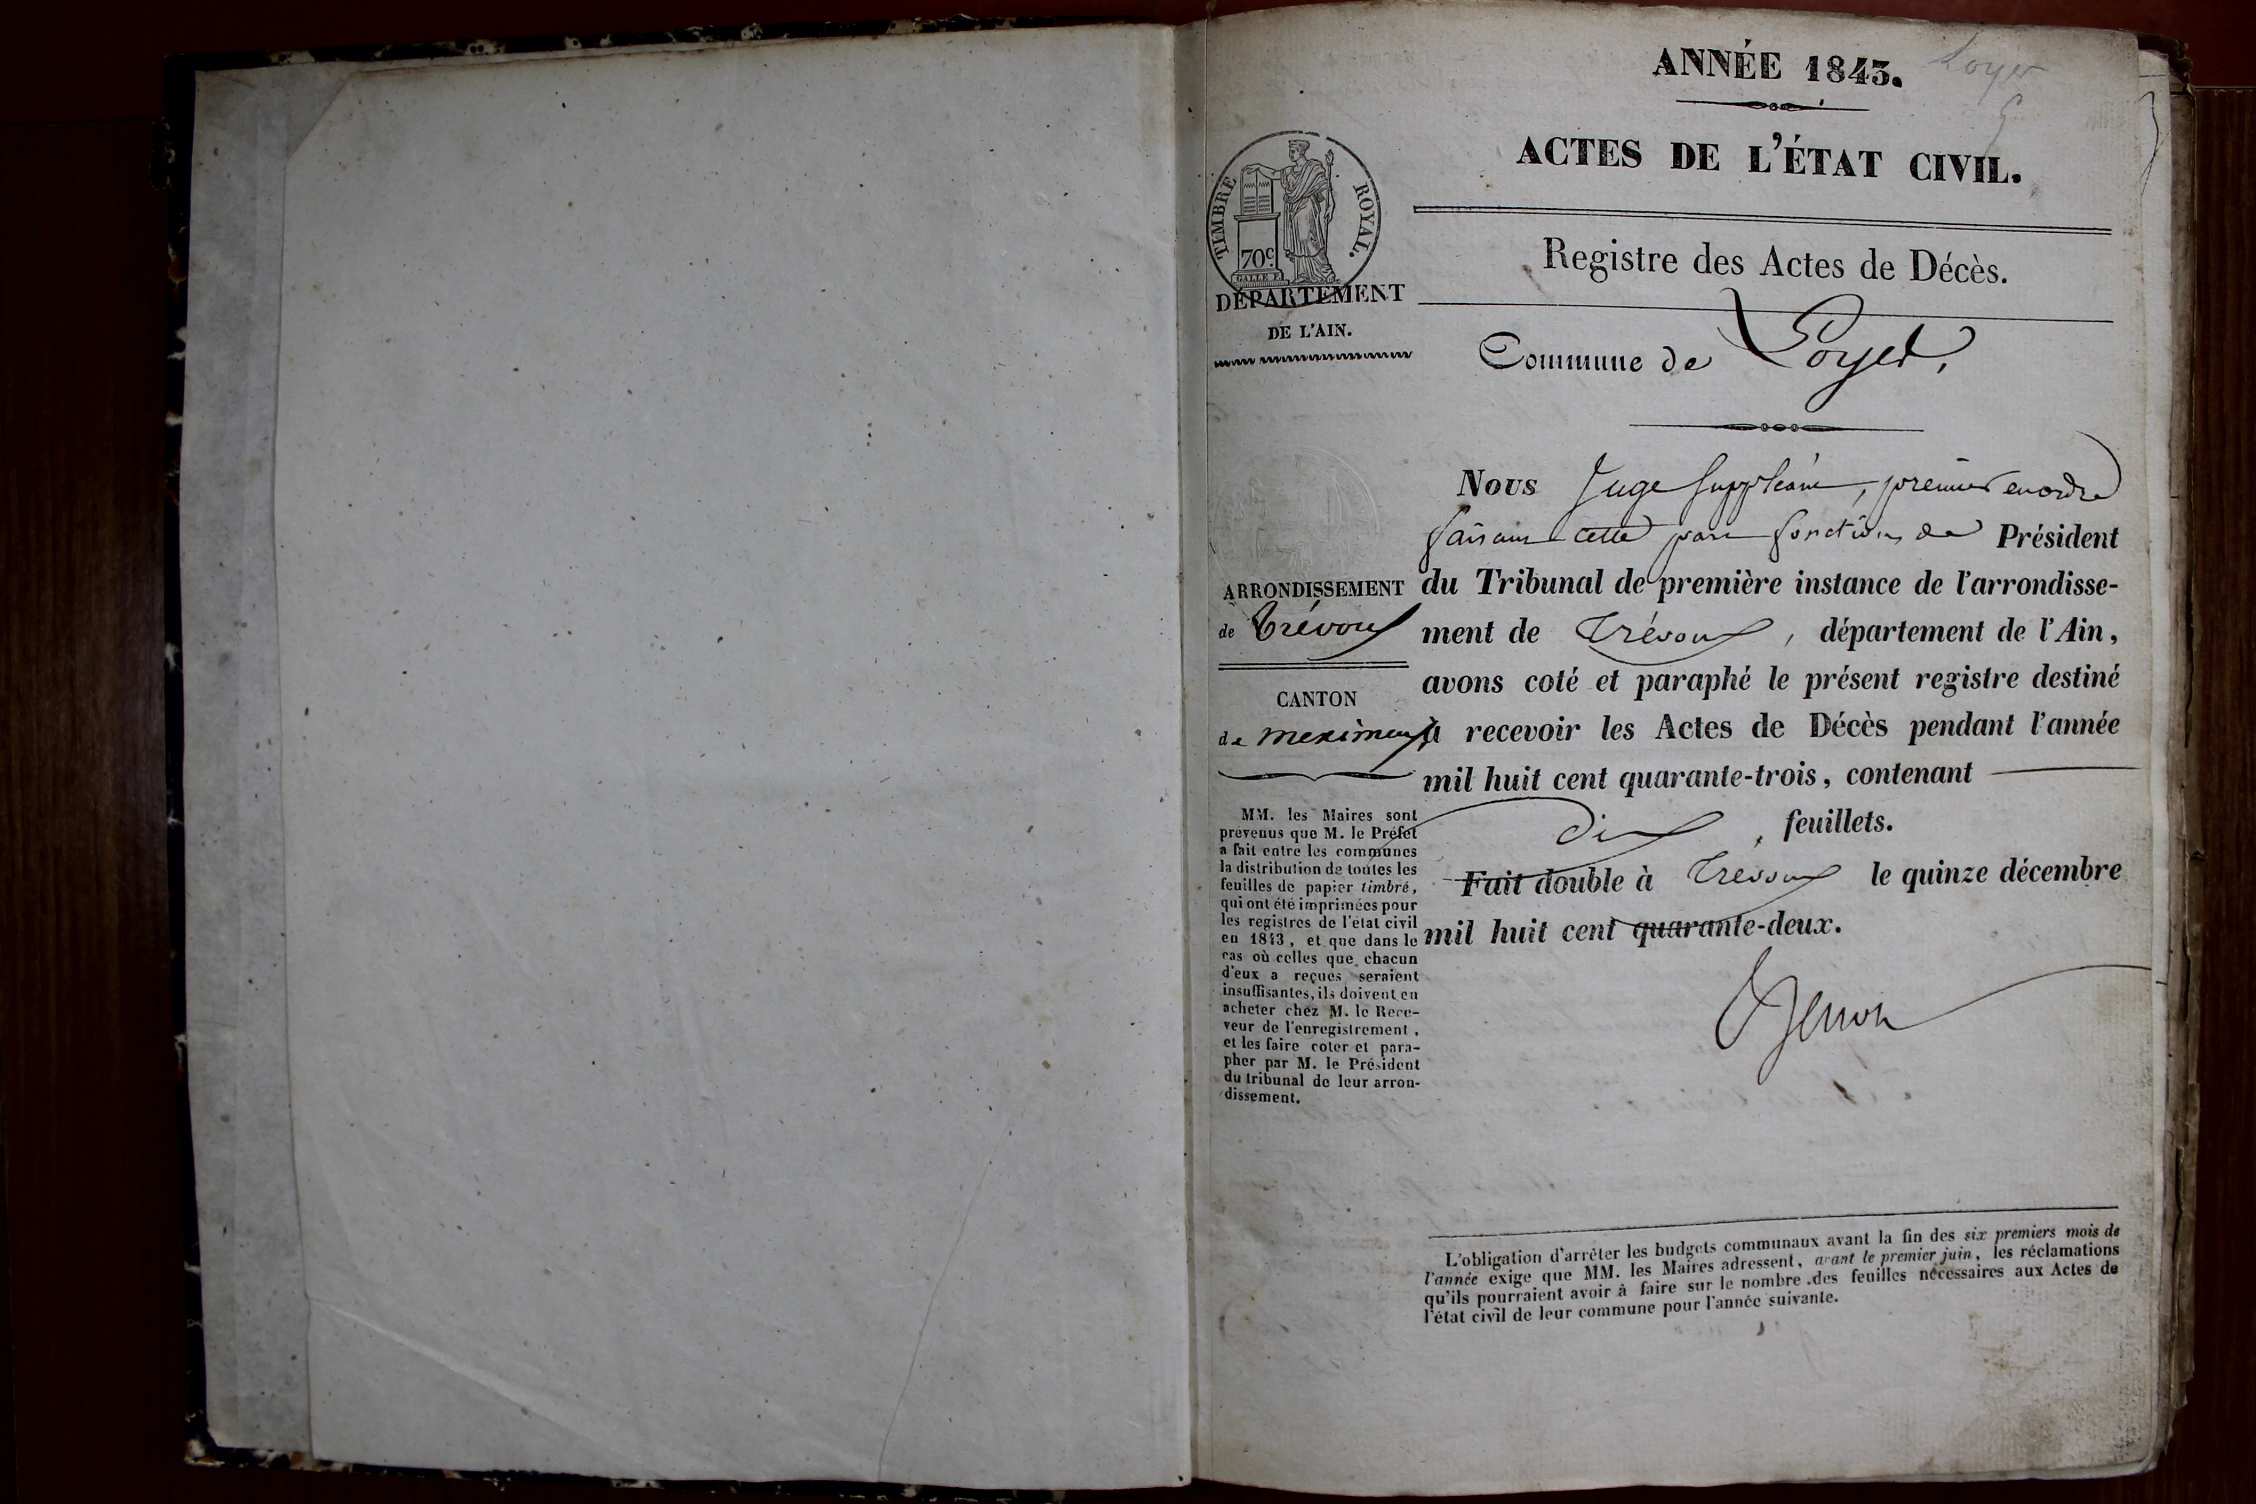 ANNÉE 1843.
Loyer
ACTES DE L'ÉTAT CIVIL.
TIMBRE ROYAL.
70c.
GALLE F.
Registre des Actes de Décès.
DÉPARTEMENT
DE L'AIN.
Commune de Loyer,
Nous Juge suppléant, premier en ordre
faisant cette part fonctions de Président
du Tribunal de première instance de l'arrondisse-
ment de Trévoux, département de l'Ain,
avons coté et paraphé le présent registre destiné
à recevoir les Actes de Décès pendant l'année
mil huit cent quarante-trois, contenant
dix feuillets.
Fait double à Trévoux le quinze décembre
mil huit cent quarante-deux.
ARRONDISSEMENT
de Trévoux
CANTON
de meximieux
MM. les Maires sont
prévenus que M. le Préfet
a fait entre les communes
la distribution de toutes les
feuilles de papier timbré,
qui ont été imprimées pour
les registres de l'état civil
en 1843, et que dans le
cas où celles que chacun
d'eux a reçues seraient
insuffisantes, ils doivent en
acheter chez M. le Rece-
veur de l'enregistrement,
et les faire coter et para-
pher par M. le Président
du tribunal de leur arron-
dissement.
L'obligation d'arrêter les budgets communaux avant la fin des six premiers mois de
l'année exige que MM. les Maires adressent, avant le premier juin, les réclamations
qu'ils pourraient avoir à faire sur le nombre des feuilles nécessaires aux Actes de
l'état civil de leur commune pour l'année suivante.